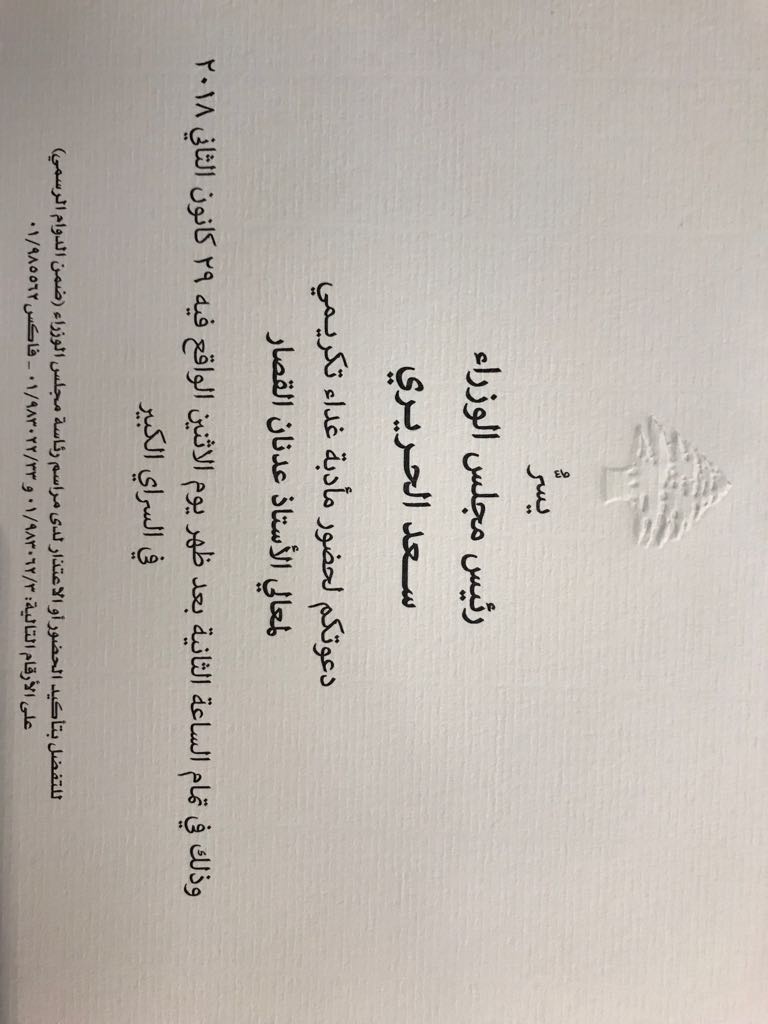 يسرّ
رئيس مجلس الوزراء
سعد الحريري
دعوتكم لحضور مأدبة غداء تكريمي
لمعالي الأستاذ عدنان القصار
وذلك في تمام الساعة الثانية بعد ظهر يوم الاثنين الواقع فيه ٢٩ كانون الثاني ٢٠١٨
في السراي الكبير
للتفضل بتاكيد الحضور أو الاعتذار لدى مراسم رئاسة مجلس الوزراء (ضمن الدوام الرسمي)
على الأرقام التالية: ٠١/٩٨٣٠٦٢/٣ و ٠١/٩٨٣٠٢٢/٢٣ – فاكس ٠١/٩٨٥٥٦٢